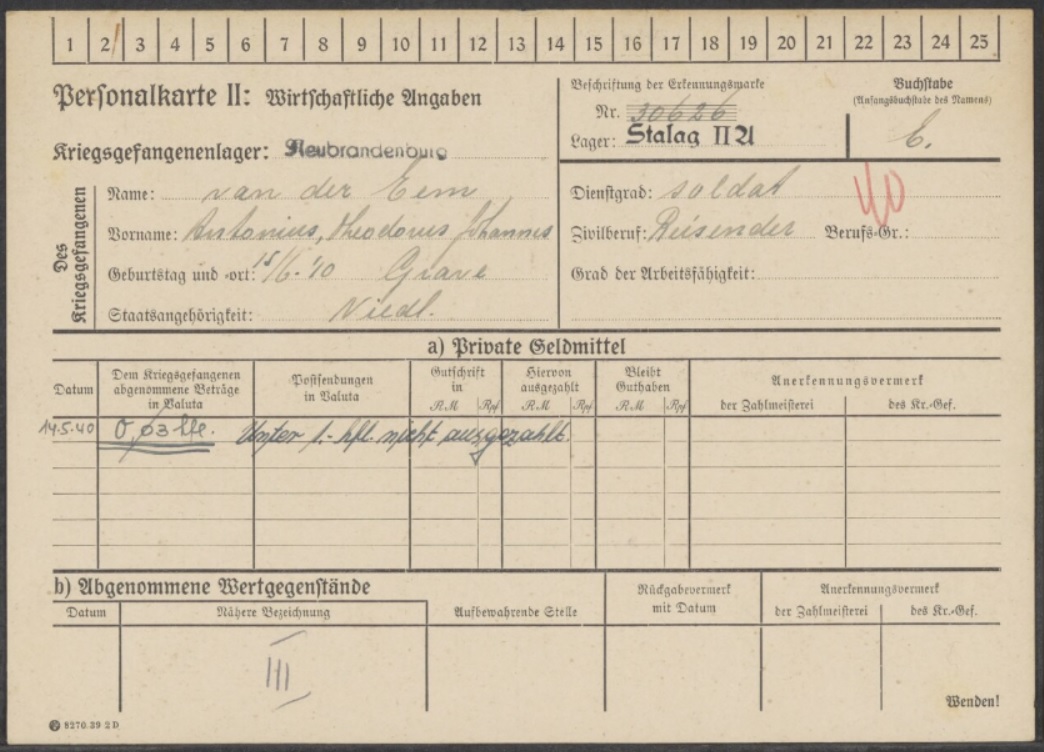 1 2 3 4 5 6 7 8 9 10 11 12 13 14 15 16 17 18 19 20 21 22 23 24 25
Personalkarte II: Wirtschaftliche Angaben
Kriegsgefangenenlager: Neubrandenburg
Beschriftung der Erkennungsmarke
Nr. 30626
Lager: Stalag II A
Buchstabe
(Anfangsbuchstabe des Namens)
E.
Des Kriegsgefangenen
Name: van der Eem
Vorname: Antonius, Theodorus Johannes
Geburtstag und -ort: 15/6-'10 Grave
Staatsangehörigkeit: Niedl.
Dienstgrad: soldat
40
Zivilberuf: Reisender Berufs-Gr.:
Grad der Arbeitsfähigkeit:
a) Private Geldmittel
Datum
Dem Kriegsgefangenen
abgenommene Beträge
in Valuta
Postsendungen
in Valuta
Gutschrift
in
RM Rpf
Hiervon
ausgezahlt
RM Rpf
Bleibt
Guthaben
RM Rpf
Anerkennungsvermerk
der Zahlmeisterei des Kr.-Gef.
14.5.40 0,63 hfl. Unter 1.- hfl. nicht ausgezahlt.
b) Abgenommene Wertgegenstände
Datum Nähere Bezeichnung
Aufbewahrende Stelle
Rückgabevermerk
mit Datum
Anerkennungsvermerk
der Zahlmeisterei des Kr.-Gef.
III
Wenden!
8270.39 2 D